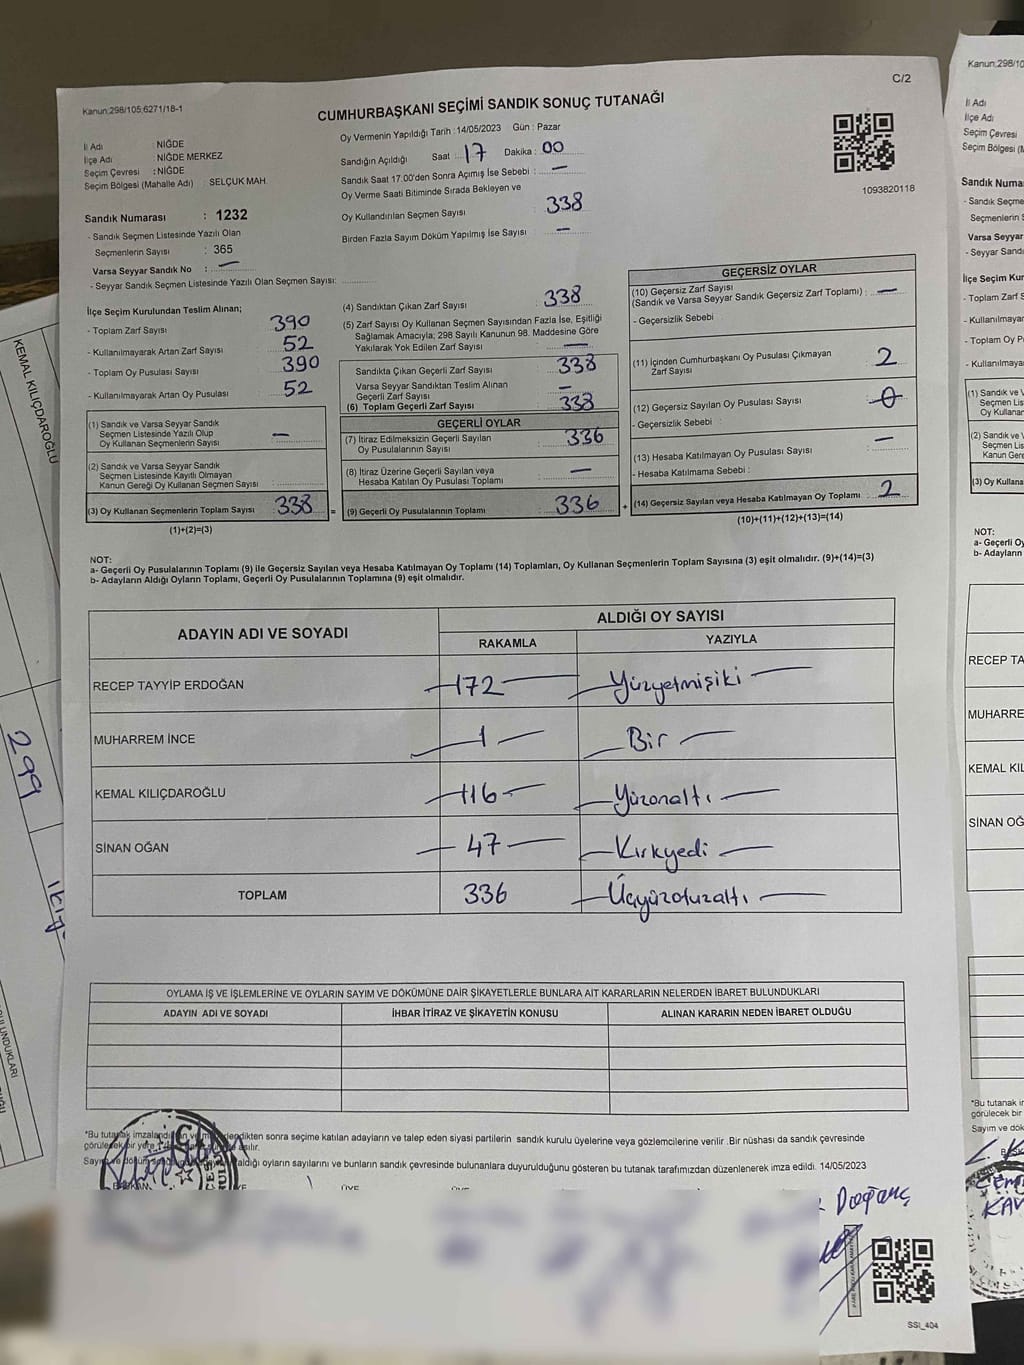 C/2
Kanun:298/105;6271/18-1
CUMHURBAŞKANI SEÇİMİ SANDIK SONUÇ TUTANAĞI
İl Adı : NİĞDE
İlçe Adı : NİĞDE MERKEZ
Seçim Çevresi : NİĞDE
Seçim Bölgesi (Mahalle Adı) : SELÇUK MAH.
Sandık Numarası : 1232
- Sandık Seçmen Listesinde Yazılı Olan
Seçmenlerin Sayısı : 365
Varsa Seyyar Sandık No : —
- Seyyar Sandık Seçmen Listesinde Yazılı Olan Seçmen Sayısı:
Oy Vermenin Yapıldığı Tarih :14/05/2023 Gün : Pazar
Sandığın Açıldığı Saat : 17 Dakika : 00
Sandık Saat 17:00'den Sonra Açımış İse Sebebi : —
Oy Verme Saati Bitiminde Sırada Bekleyen ve
Oy Kullandırılan Seçmen Sayısı 338
Birden Fazla Sayım Döküm Yapılmış İse Sayısı —
1093820118
İlçe Seçim Kurulundan Teslim Alınan;
- Toplam Zarf Sayısı 390
- Kullanılmayarak Artan Zarf Sayısı 52
- Toplam Oy Pusulası Sayısı 390
- Kullanılmayarak Artan Oy Pusulası 52
(1) Sandık ve Varsa Seyyar Sandık
Seçmen Listesinde Yazılı Olup
Oy Kullanan Seçmenlerin Sayısı : —
(2) Sandık ve Varsa Seyyar Sandık
Seçmen Listesinde Kayıtlı Olmayan
Kanun Gereği Oy Kullanan Seçmen Sayısı :
(3) Oy Kullanan Seçmenlerin Toplam Sayısı : 338 =
(1)+(2)=(3)
(4) Sandıktan Çıkan Zarf Sayısı : 338
(5) Zarf Sayısı Oy Kullanan Seçmen Sayısından Fazla İse, Eşitliği
Sağlamak Amacıyla; 298 Sayılı Kanunun 98. Maddesine Göre
Yakılarak Yok Edilen Zarf Sayısı : —
Sandıkta Çıkan Geçerli Zarf Sayısı : 338
Varsa Seyyar Sandıktan Teslim Alınan
Geçerli Zarf Sayısı : —
(6) Toplam Geçerli Zarf Sayısı : 338
GEÇERLİ OYLAR
(7) İtiraz Edilmeksizin Geçerli Sayılan
Oy Pusulalarının Sayısı : 336
(8) İtiraz Üzerine Geçerli Sayılan veya
Hesaba Katılan Oy Pusulası Toplamı : —
(9) Geçerli Oy Pusulalarının Toplamı : 336 +
GEÇERSİZ OYLAR
(10) Geçersiz Zarf Sayısı
(Sandık ve Varsa Seyyar Sandık Geçersiz Zarf Toplamı) : —
- Geçersizlik Sebebi :
(11) İçinden Cumhurbaşkanı Oy Pusulası Çıkmayan
Zarf Sayısı : 2
(12) Geçersiz Sayılan Oy Pusulası Sayısı : 0
- Geçersizlik Sebebi :
(13) Hesaba Katılmayan Oy Pusulası Sayısı : —
- Hesaba Katılmama Sebebi :
(14) Geçersiz Sayılan veya Hesaba Katılmayan Oy Toplamı : 2
(10)+(11)+(12)+(13)=(14)
NOT:
a- Geçerli Oy Pusulalarının Toplamı (9) ile Geçersiz Sayılan veya Hesaba Katılmayan Oy Toplamı (14) Toplamları, Oy Kullanan Seçmenlerin Toplam Sayısına (3) eşit olmalıdır. (9)+(14)=(3)
b- Adayların Aldığı Oyların Toplamı, Geçerli Oy Pusulalarının Toplamına (9) eşit olmalıdır.
ADAYIN ADI VE SOYADI
ALDIĞI OY SAYISI
RAKAMLA YAZIYLA
RECEP TAYYİP ERDOĞAN 172 Yüzyetmişiki
MUHARREM İNCE 1 Bir
KEMAL KILIÇDAROĞLU 116 Yüzonaltı
SİNAN OĞAN 47 Kırkyedi
TOPLAM 336 Üçyüzotuzaltı
OYLAMA İŞ VE İŞLEMLERİNE VE OYLARIN SAYIM VE DÖKÜMÜNE DAİR ŞİKAYETLERLE BUNLARA AİT KARARLARIN NELERDEN İBARET BULUNDUKLARI
ADAYIN ADI VE SOYADI İHBAR İTİRAZ VE ŞİKAYETİN KONUSU ALINAN KARARIN NEDEN İBARET OLDUĞU
*Bu tutanak sonra seçime katılan adayların ve talep eden siyasi partilerin sandık kurulu üyelerine veya gözlemcilerine verilir .Bir nüshası da sandık çevresinde
görülecek bir yere
aldığı oyların sayılarını ve bunların sandık çevresinde bulunanlara duyurulduğunu gösteren bu tutanak tarafımızdan düzenlenerek imza edildi. 14/05/2023
ÜYE
Doğanç
SSI_404
KEMAL KILIÇDAROĞLU
299
Kanun:298/10
İl Adı
İlçe Adı
Seçim Çevresi
Seçim Bölgesi (M
Sandık Numa
- Sandık Seçme
Seçmenlerin S
Varsa Seyyar
- Seyyar Sandı
İlçe Seçim Kur
- Toplam Zarf S
- Kullanılmayar
- Toplam Oy P
- Kullanılmayar
(1) Sandık ve V
Seçmen Lis
Oy Kullanan
(2) Sandık ve
Seçmen Lis
Kanun Gere
(3) Oy Kullana
NOT:
a- Geçerli Oy
b- Adayların
RECEP TA
MUHARRE
KEMAL KIL
SİNAN OĞ
*Bu tutanak ir
görülecek bir
Sayım ve dök
KAV